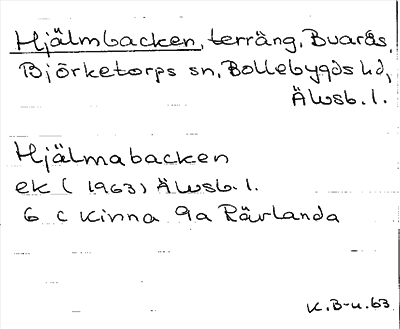 Hjälmbacken, terräng, Buarås,
Björketorps sn, Bollebygds hd,
Älvsb. l.
Hjälmabacken
ek (1963) Älvsb. l.
6 C Kinna 9a Rävlanda
K.B-u.63